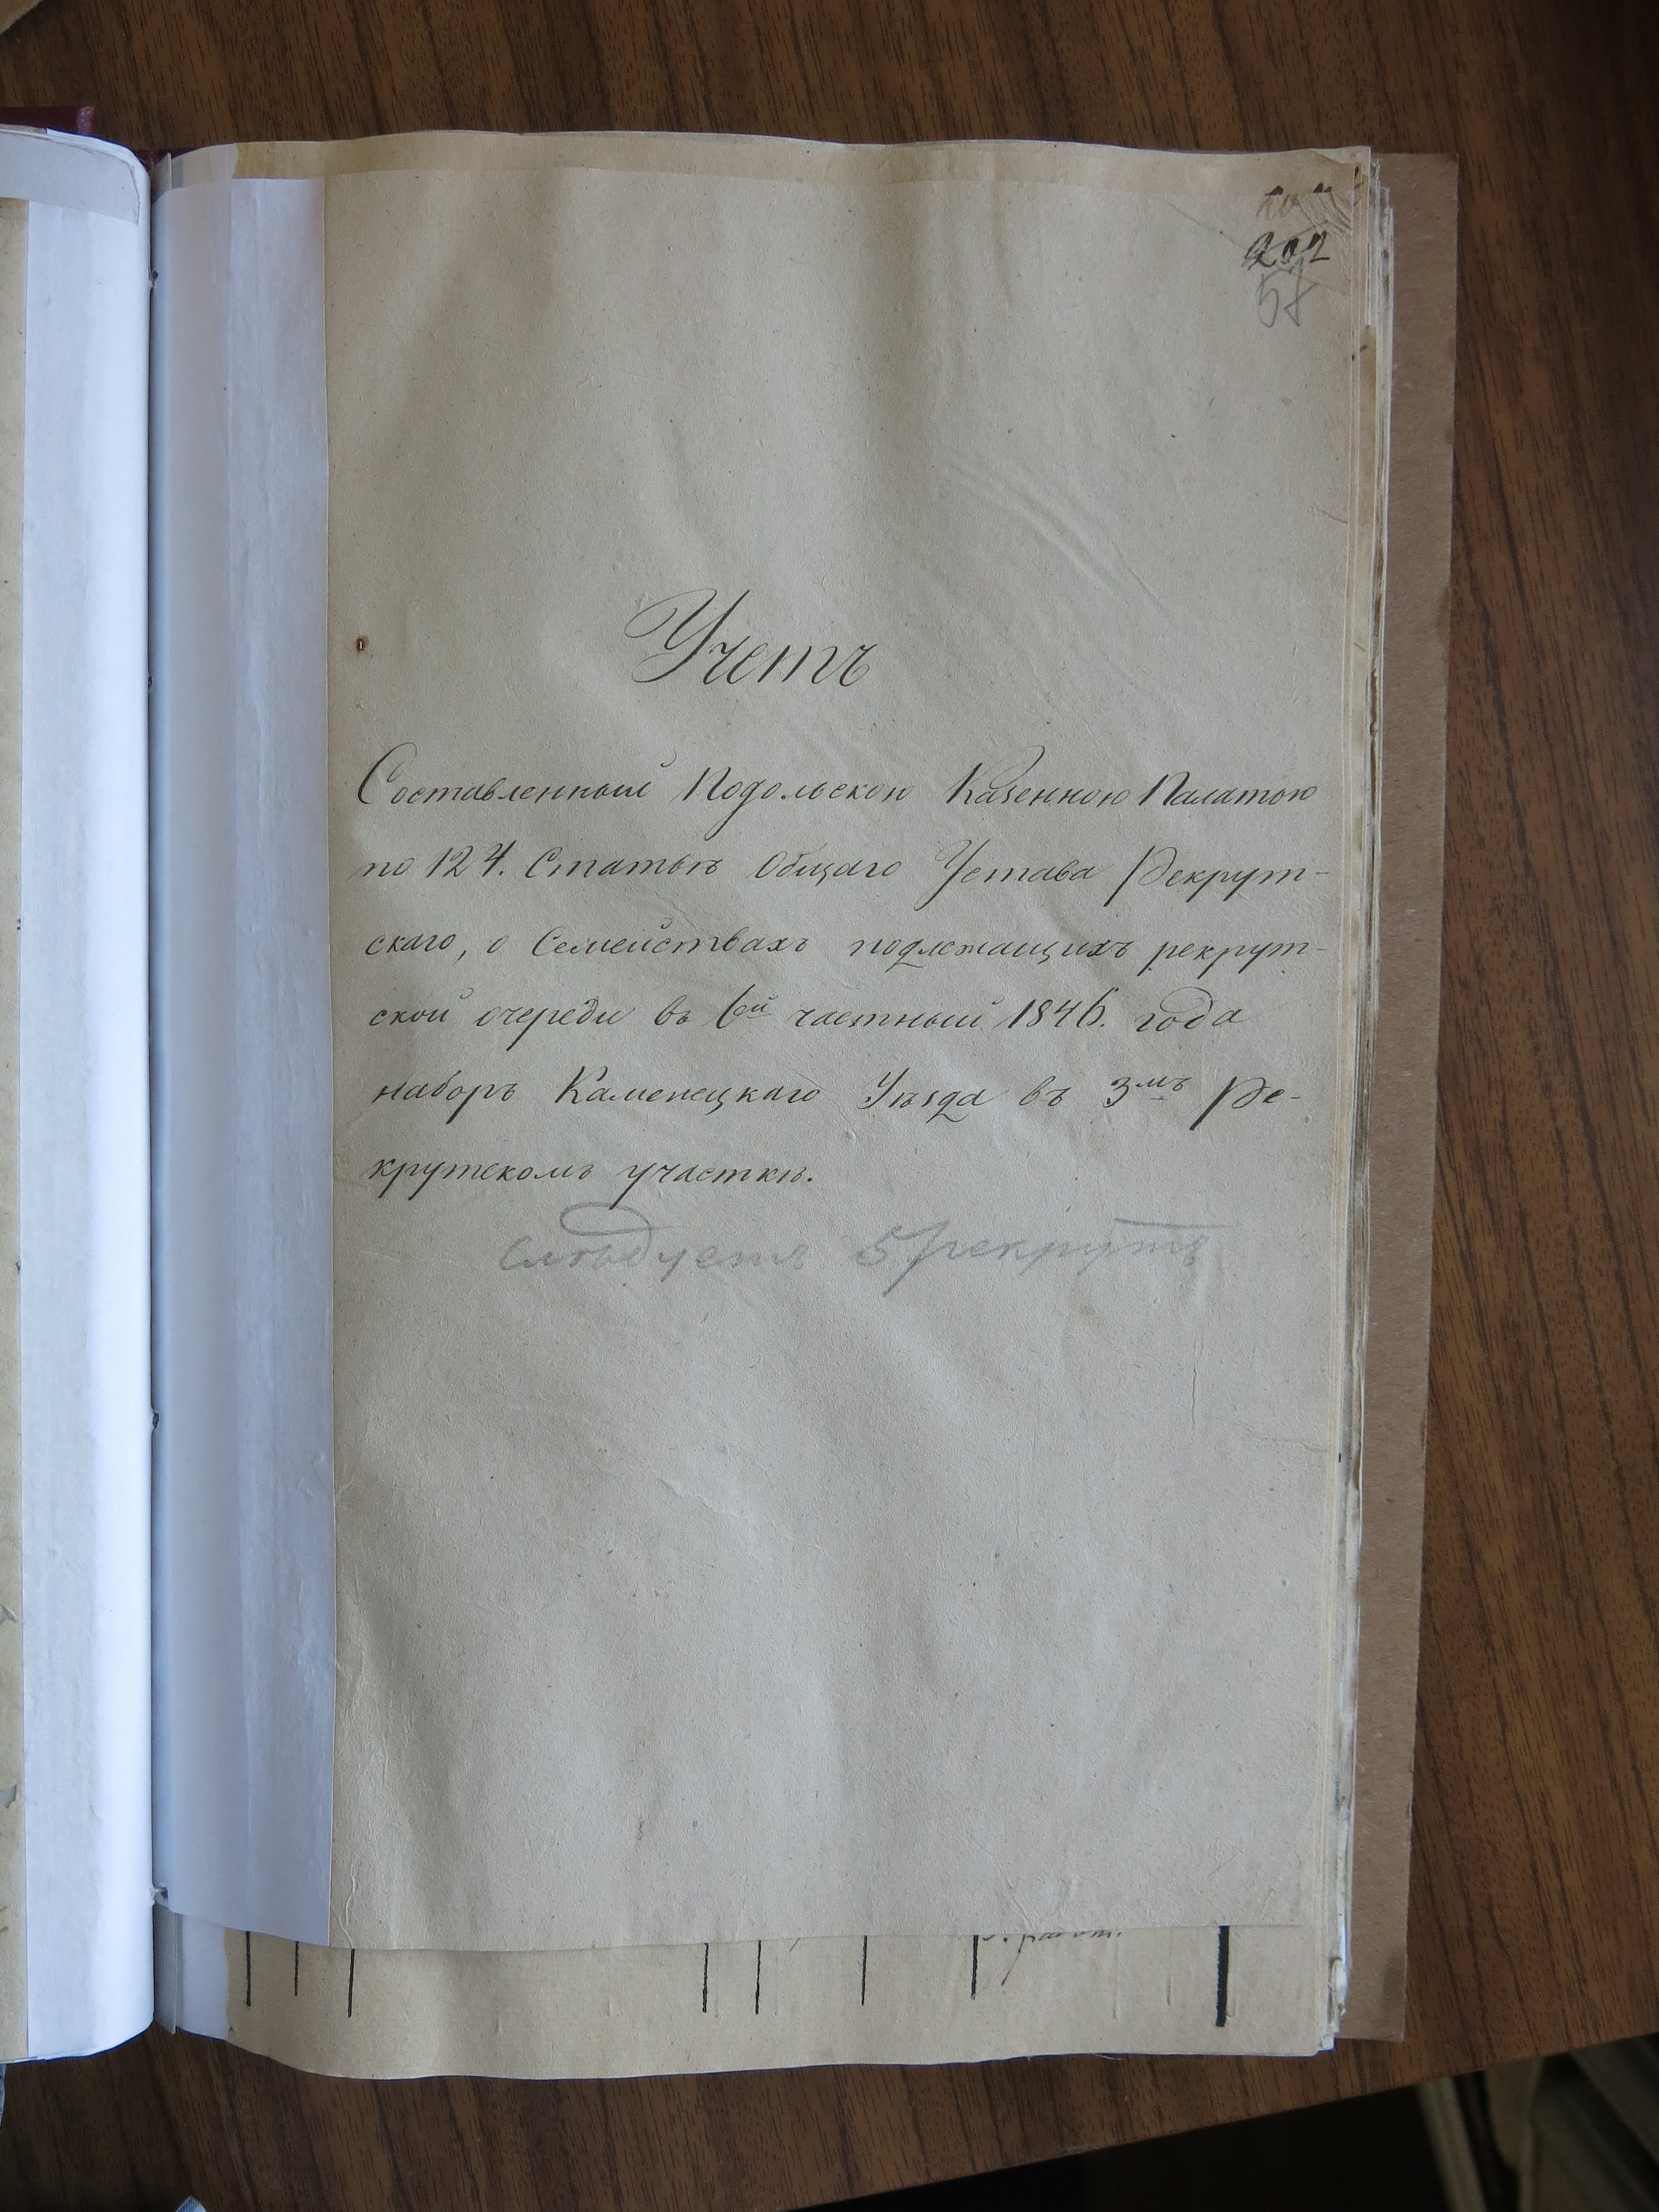 202
58
Учетъ
Составленный Подольскою Казенною Палатою
по 124. Статьѣ Общаго Устава Рекрут-
скаго, о Семействахъ подлежащихъ рекрут-
ской очереди въ 6й частный 1846. года
наборъ Каменецкаго Уѣзда въ 3мъ Ре-
крутскомъ участкѣ.
Слѣдуетъ 5 рекрутъ